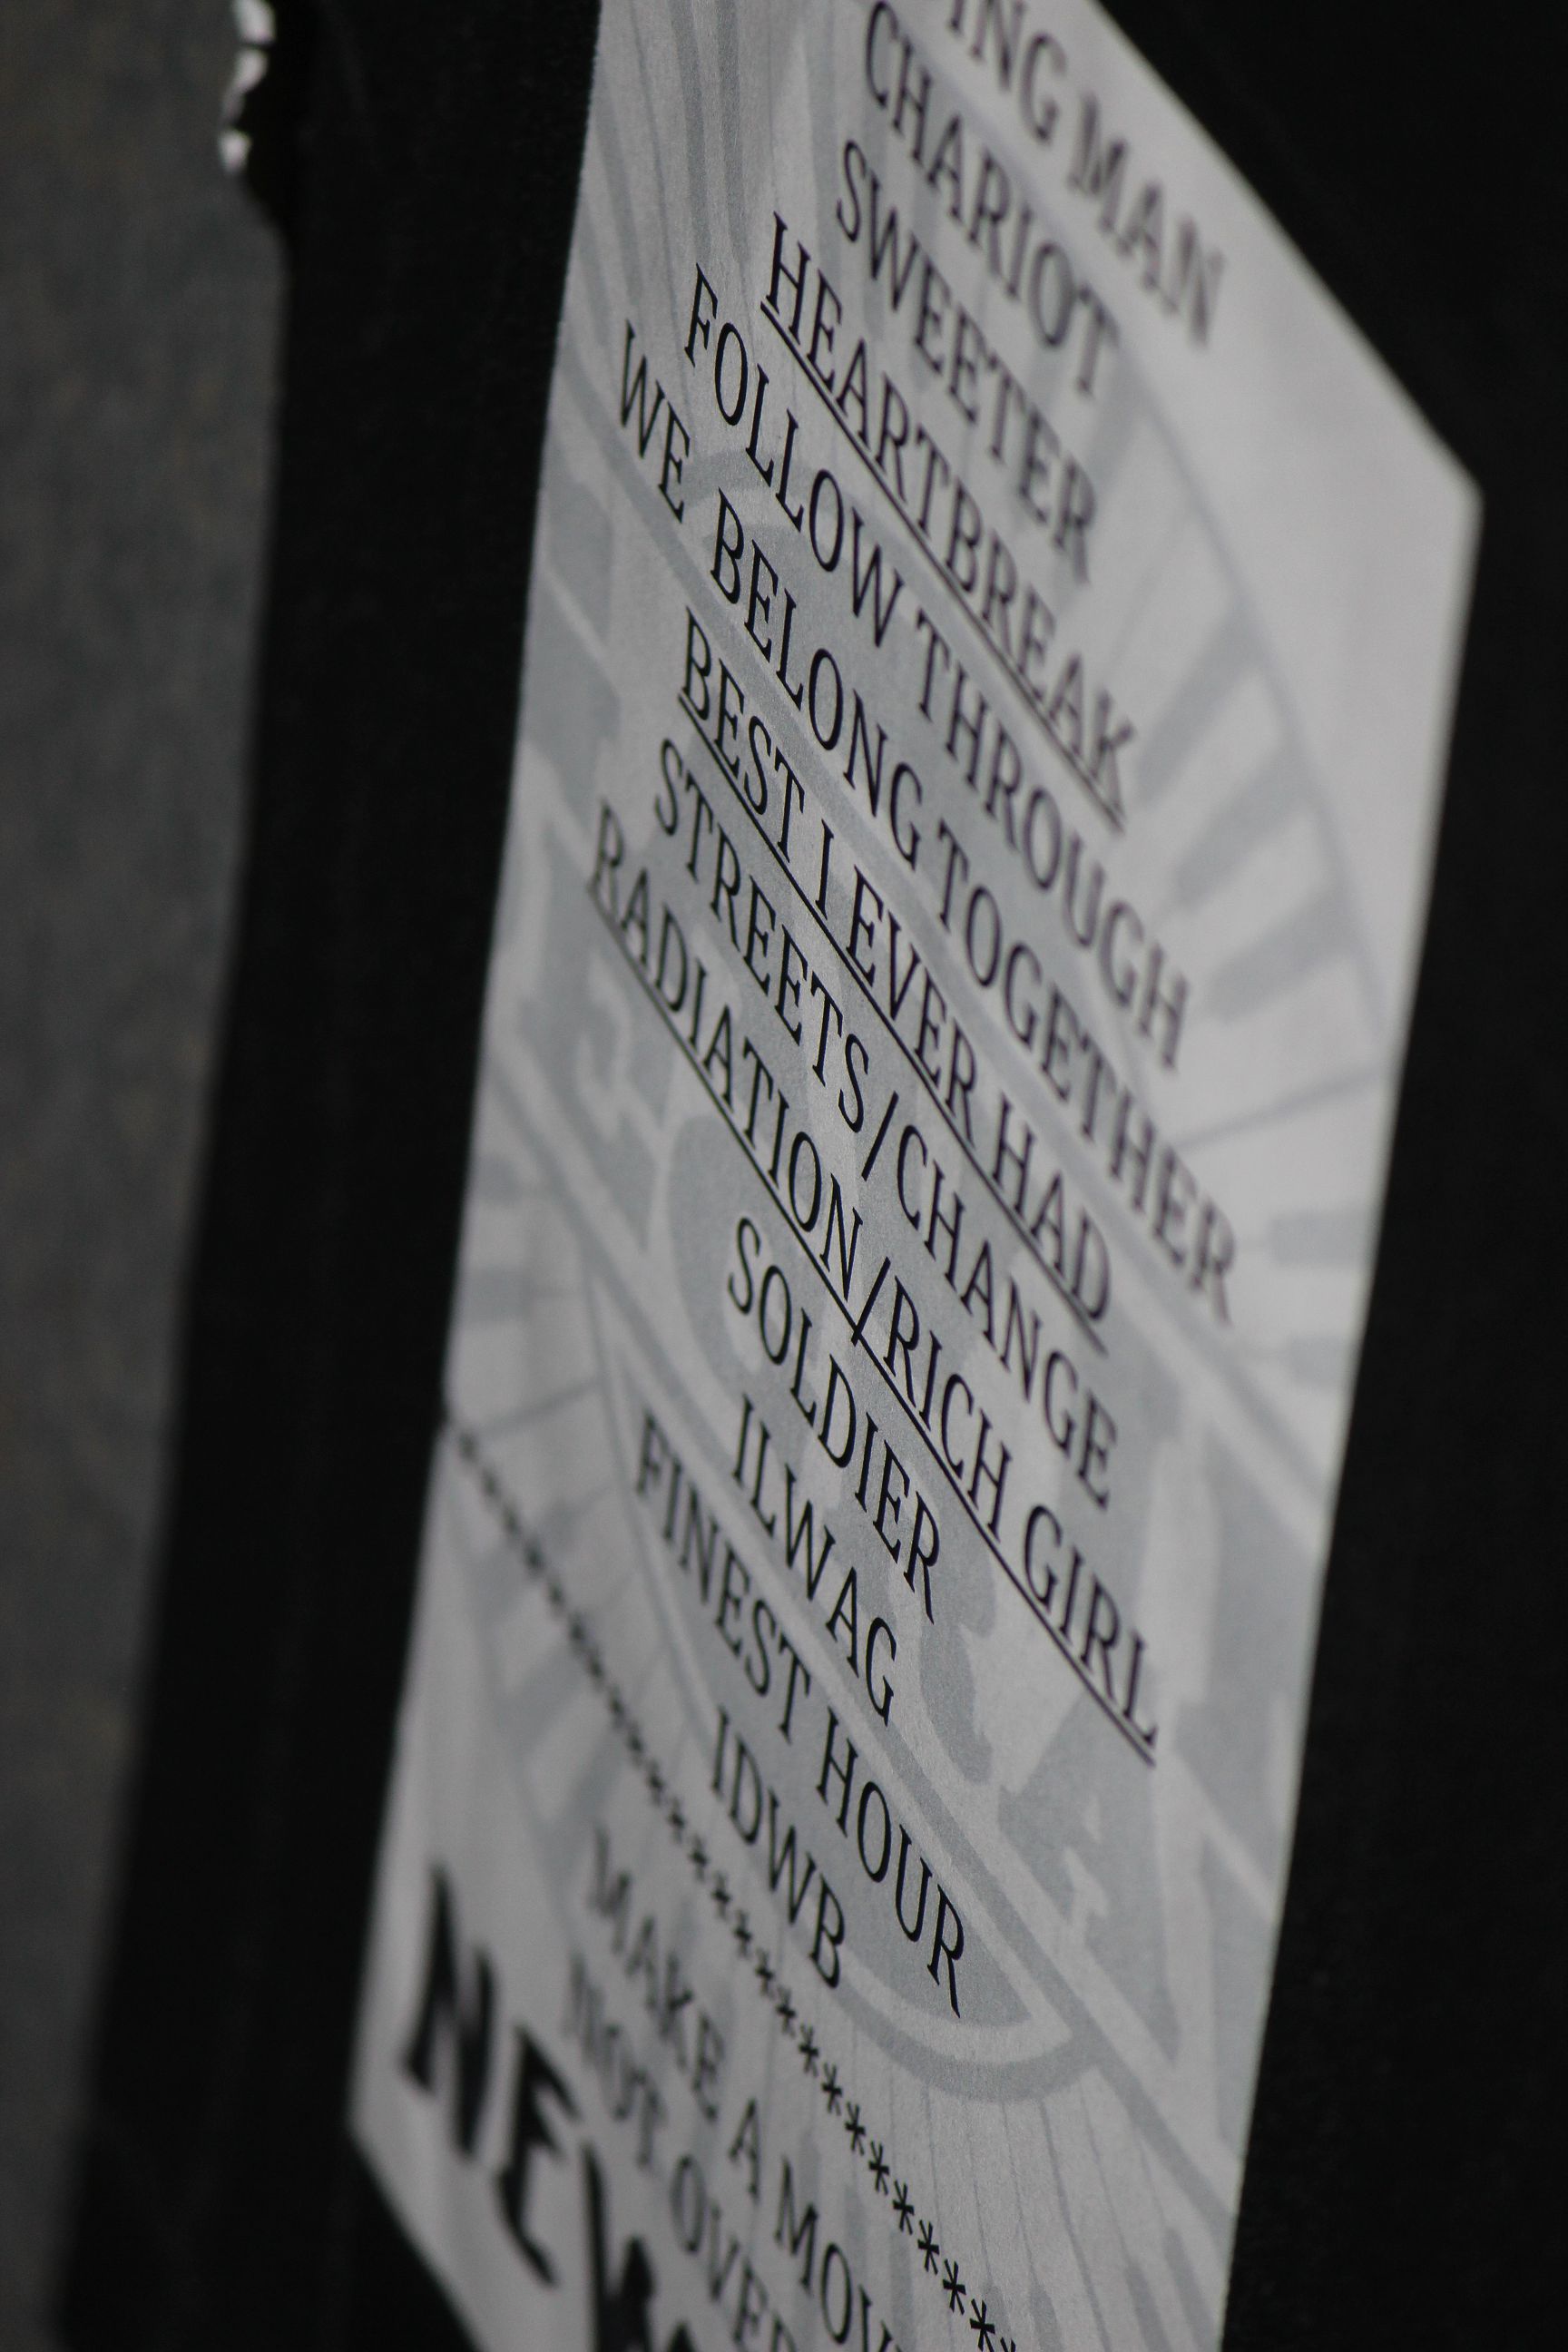 ING MAN
CHARIOT
SWEETER
HEARTBREAK
FOLLOW THROUGH
WE BELONG TOGETHER
BEST I EVER HAD
STREETS/CHANGE
RADIATION/RICH GIRL
SOLDIER
ILWAG
FINEST HOUR
IDWB
*********************
MAKE A MOV
NOT OVER
NEW